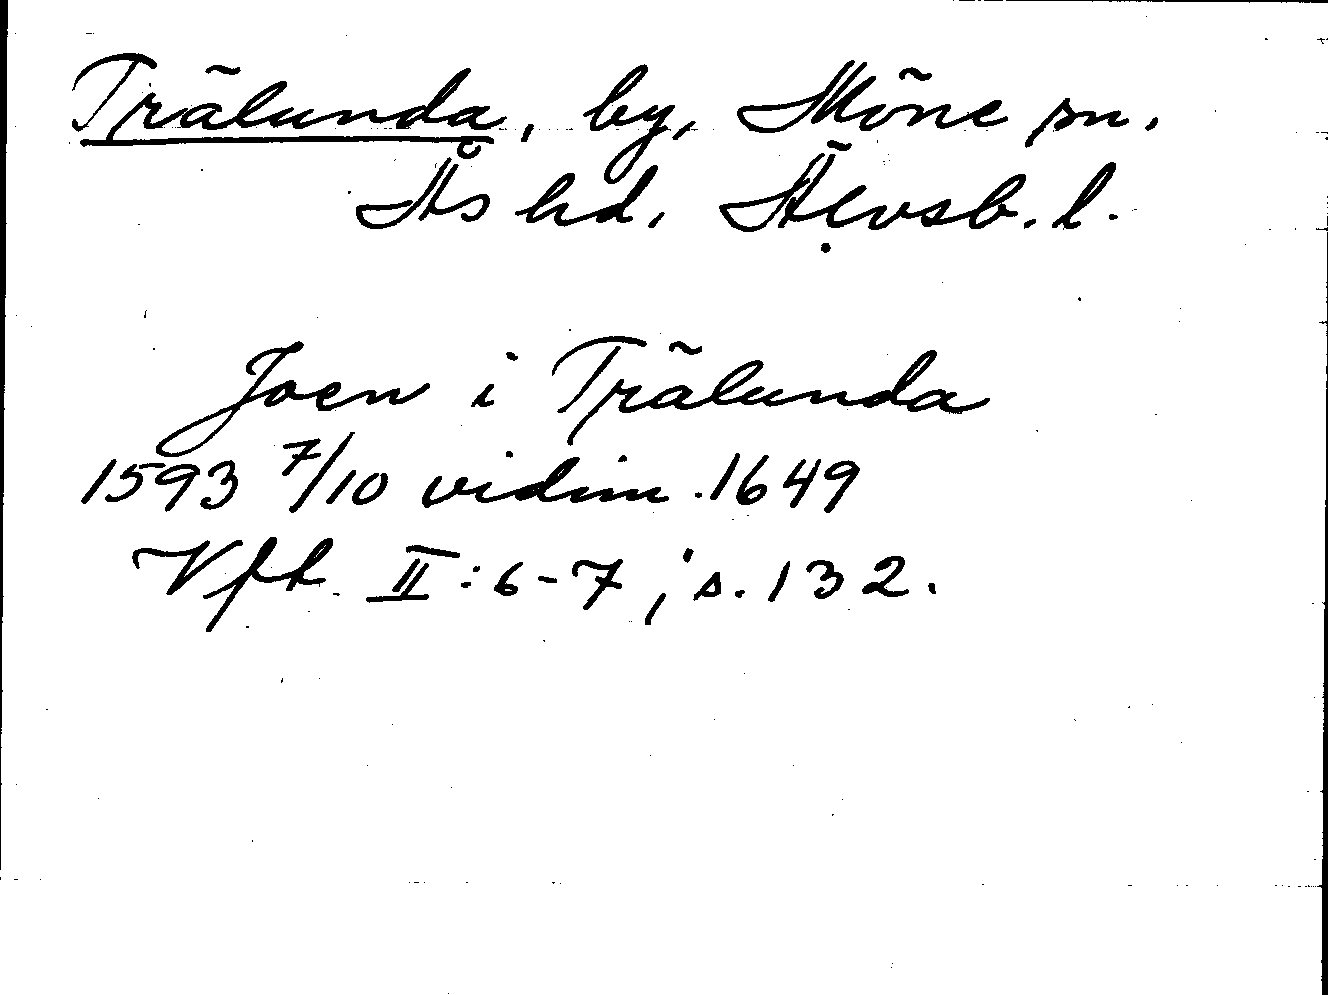 Trälunda, by, Möne sn.
Ås hd. Älvsb. l.
Joen i Trälunda
1593 7/10 vidim. 1649
Vft II: 6-7, s. 132.